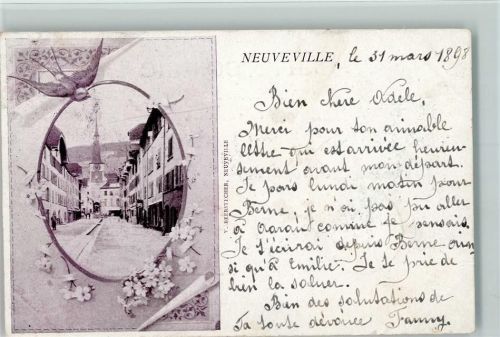 NEUVEVILLE, le 31 mars 1898
Bien chère Adèle,
Merci pour ton aimable
lettre qui est arrivée heureu-
sement avant mon départ.
Je pars lundi matin pour
Berne, je n'ai pas pu aller
à Aarau comme je pensais.
Je t'écrirai depuis Berne ain-
si qu'à Emilie. Je te prie de
bien la saluer.
Bien des salutations de
Ta toute dévouée Fanny.
NEUVEVILLE